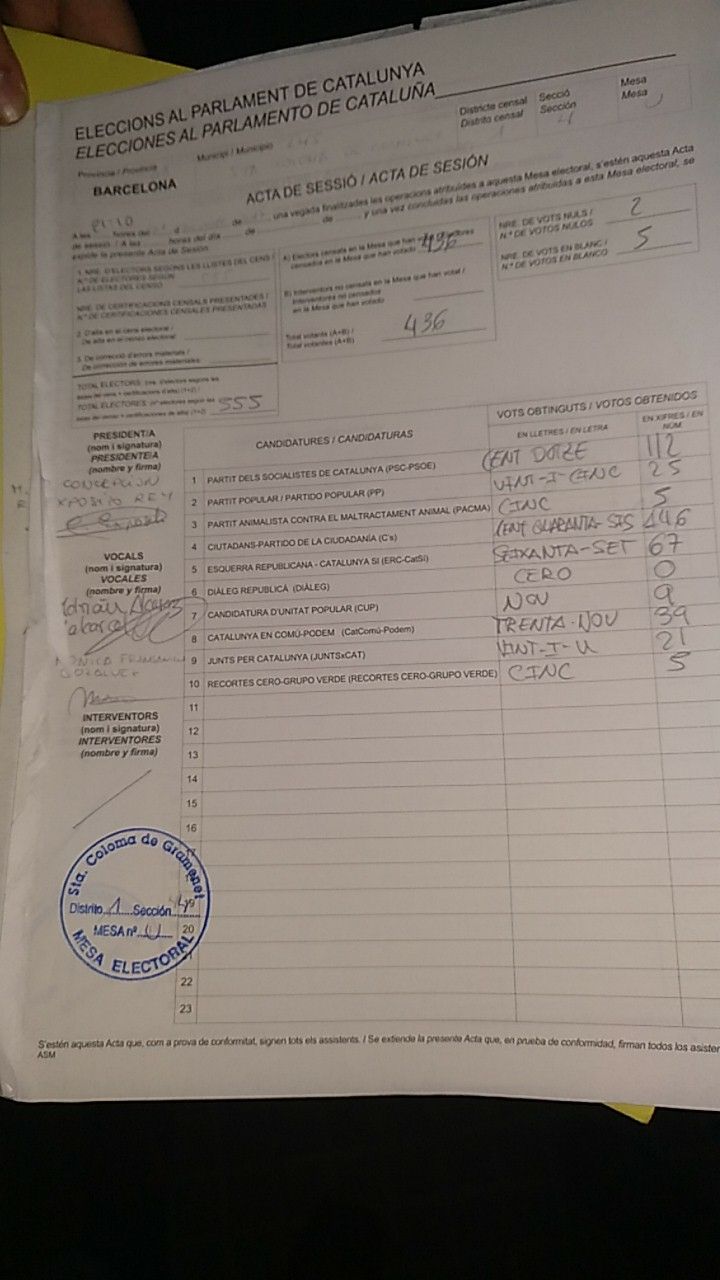 ELECCIONS AL PARLAMENT DE CATALUNYA
ELECCIONES AL PARLAMENTO DE CATALUÑA
Província / Provincia
BARCELONA
Municipi / Municipio
Districte censal
Distrito censal
1
Secció
Sección
4
Mesa
Mesa
U
ACTA DE SESSIÓ / ACTA DE SESIÓN
A les 21:10 hores del d de una vegada finalitzades les operacions atribuïdes a aquesta Mesa electoral, s'estén aquesta Acta
de sessió. / A las horas del día de de y una vez concluidas las operaciones atribuidas a esta Mesa electoral, se
expide la presente Acta de Sesión.
1. NRE. D'ELECTORS SEGONS LES LLISTES DEL CENS /
N.º DE ELECTORES SEGÚN
LAS LISTAS DEL CENSO
NRE. DE CERTIFICACIONS CENSALS PRESENTADES /
N.º DE CERTIFICACIONES CENSALES PRESENTADAS
2. D'alta en el cens electoral /
De alta en el censo electoral:
3. De correcció d'errors materials /
De corrección de errores materiales:
TOTAL ELECTORS:
TOTAL ELECTORES: 555
A) Electors censats en la Mesa que han votat
censados en la Mesa que han votado 436
B) Interventors no censats en la Mesa que han votat /
Interventores no censados
en la Mesa que han votado
Total votants (A+B) /
Total votantes (A+B) 436
NRE. DE VOTS NULS /
N.º DE VOTOS NULOS 2
NRE. DE VOTS EN BLANC /
N.º DE VOTOS EN BLANCO 5
PRESIDENT/A
(nom i signatura)
PRESIDENTE/A
(nombre y firma)
CONCEPCION
XPOSITO REY
VOCALS
(nom i signatura)
VOCALES
(nombre y firma)
MONICA
INTERVENTORS
(nom i signatura)
INTERVENTORES
(nombre y firma)
CANDIDATURES / CANDIDATURAS
VOTS OBTINGUTS / VOTOS OBTENIDOS
EN LLETRES / EN LETRA
EN XIFRES / EN NÚM.
1 PARTIT DELS SOCIALISTES DE CATALUNYA (PSC-PSOE) CENT DOTZE 112
2 PARTIT POPULAR / PARTIDO POPULAR (PP) VINT-I-CINC 25
3 PARTIT ANIMALISTA CONTRA EL MALTRACTAMENT ANIMAL (PACMA) CINC 5
4 CIUTADANS-PARTIDO DE LA CIUDADANÍA (C's) CENT QUARANTA-SIS 146
5 ESQUERRA REPUBLICANA - CATALUNYA SI (ERC-CatSí) SEIXANTA-SET 67
6 DIÀLEG REPUBLICÀ (DIÀLEG) CERO 0
7 CANDIDATURA D'UNITAT POPULAR (CUP) NOU 9
8 CATALUNYA EN COMÚ-PODEM (CatComú-Podem) TRENTA-NOU 39
9 JUNTS PER CATALUNYA (JUNTSxCAT) VINT-I-U 21
10 RECORTES CERO-GRUPO VERDE (RECORTES CERO-GRUPO VERDE) CINC 5
11
12
13
14
15
16
20
22
23
Sta. Coloma de Gramenet
Distrito 1 Sección
MESA nº U
MESA ELECTORAL
S'estén aquesta Acta que, com a prova de conformitat, signen tots els assistents. / Se extiende la presente Acta que, en prueba de conformidad, firman todos los asisten
ASM